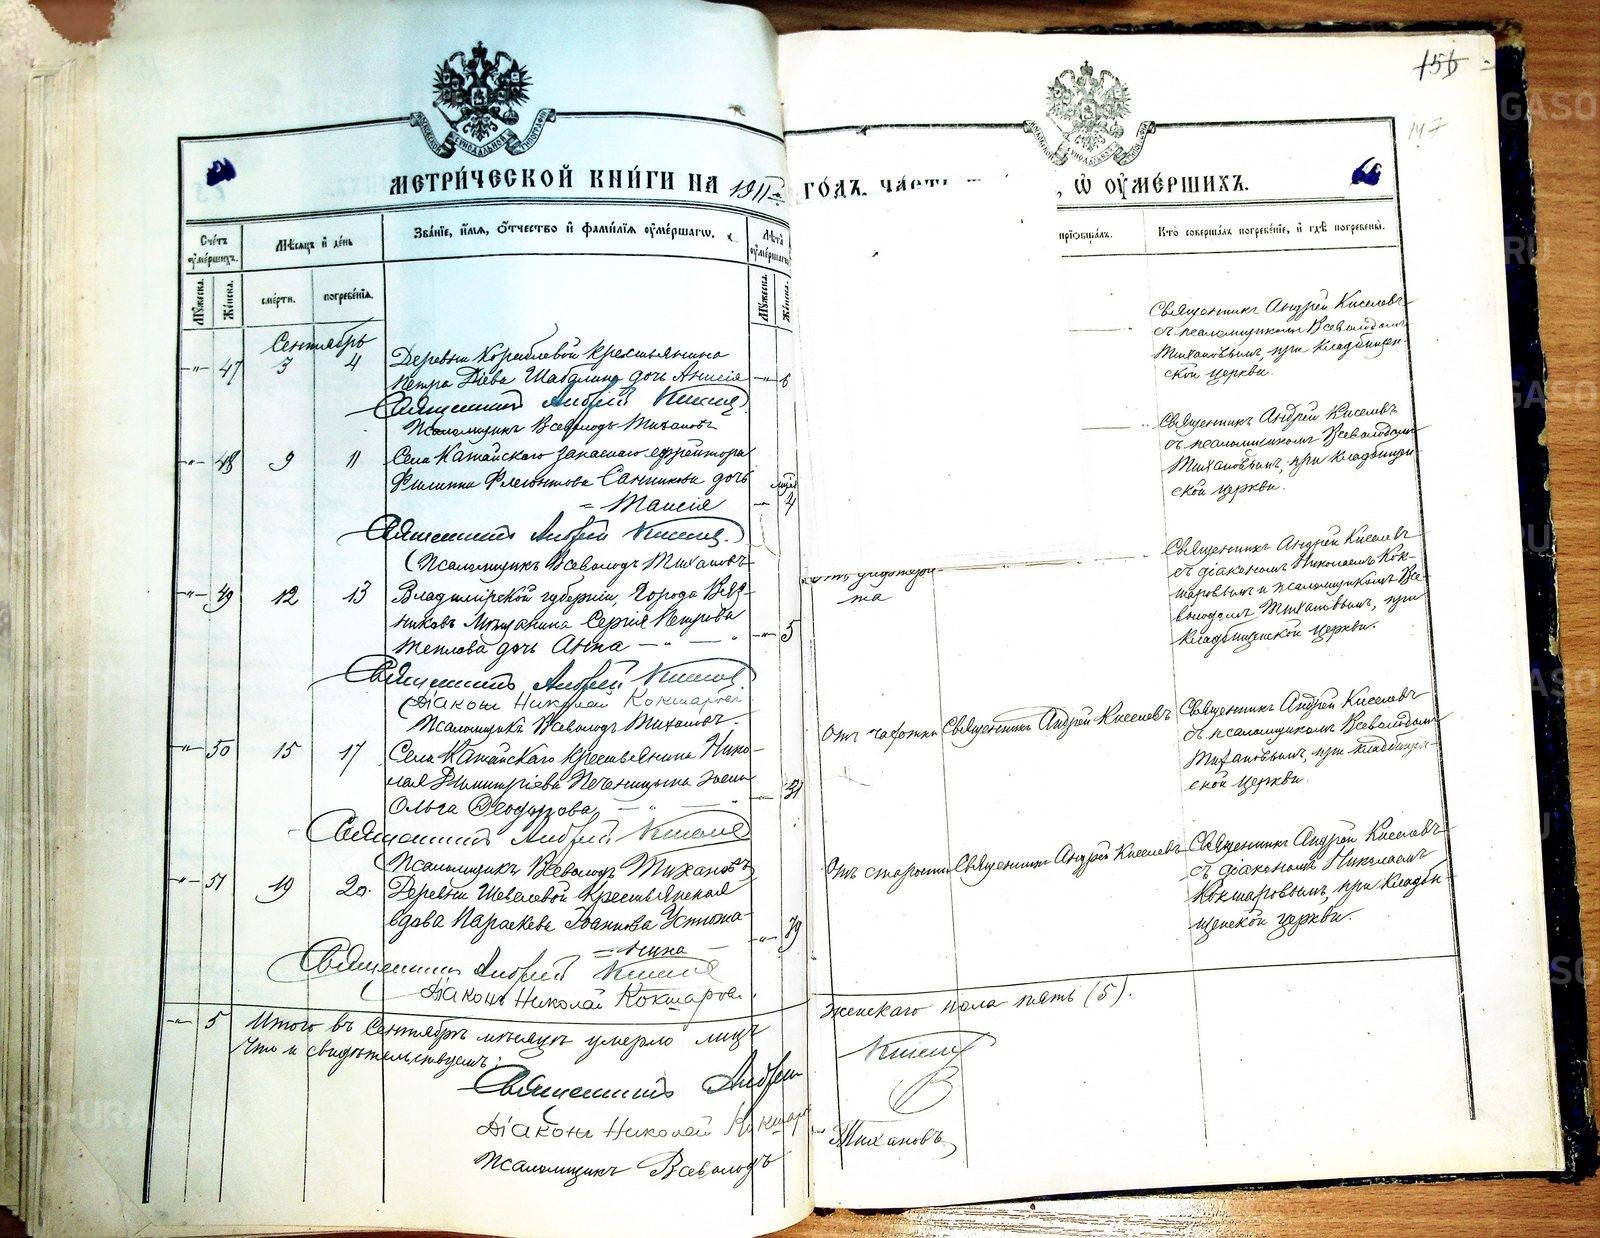 151
147
МЕТРИ́ЧЕСКОЙ КНИ́ГИ НА 1911
ГО́ДЪ, ЧА́СТЬ
, Ѿ ОУ҆МЕ́РШИХЪ.
68
Сче́тъ оу҆ме́ршихъ.
Мѣ́сяцъ и҆ де́нь
Зва́нїе, и҆́мя, ѻ҆́тчество и҆ фами́лїя оу҆ме́ршагѡ.
Лѣ́та оу҆ме́ршагѡ
прїѡбща́лъ.
Кто̀ соверша́лъ погребе́нїе, и҆ гдѣ̀ погребены̀.
Мꙋ́жеска.
Же́нска.
сме́рти.
погребе́нїя.
Мꙋ́жеска.
Же́нска.
Сентябрь
-"- 47 3 4 Деревни Кораблевой крестьянина
Петра Діева Шабалина дочь Анисія -"- 6
Священникъ Андрей Киселевъ
Псаломщикъ Всеволодъ Тихановъ
Священникъ Андрей Киселевъ
съ псаломщикомъ Всеволодомъ
Тихановымъ, при кладбищен-
ской церкви.
-"- 48 9 11 Села Катайскаго запаснаго ефрейтора
Филиппа Флегонтова Санникова дочь
= Таисія 4
Священникъ Андрей Киселевъ
Псаломщикъ Всеволодъ Тихановъ
Священникъ Андрей Киселевъ
съ псаломщикомъ Всеволодомъ
Тихановымъ, при кладбищен-
ской церкви.
-"- 49 12 13 Владимірской губерніи, города Вяз-
никовъ мѣщанина Сергія Петрова
Теплова дочь Анна -"- 5
Священникъ Андрей Киселевъ
Діаконъ Николай Кокшаровъ
Псаломщикъ Всеволодъ Тихановъ.
Отъ дифтери-
та
Священникъ Андрей Киселевъ
съ діакономъ Николаемъ Кок-
шаровымъ и псаломщикомъ Все-
володомъ Тихановымъ, при
кладбищенской церкви.
-"- 50 15 17 Села Катайскаго крестьянина Нико-
лая Димитріева Печеницына жена
Ольга Ѳеодорова 31
Священникъ Андрей Киселевъ
Псаломщикъ Всеволодъ Тихановъ
Отъ чахотки Священникъ Андрей Киселевъ
Священникъ Андрей Киселевъ
съ псаломщикомъ Всеволодомъ
Тихановымъ, при кладбищен-
ской церкви.
-"- 51 19 20. Деревни Шевелевой крестьянская
вдова Параскева Іоаннова Устюжа-
= нина -"- 79
Священникъ Андрей Киселевъ
Діаконъ Николай Кокшаровъ.
Отъ старости Священникъ Андрей Киселевъ
Священникъ Андрей Киселевъ
съ діакономъ Николаемъ
Кокшаровымъ, при кладби-
щенской церкви.
-"- 5 Итого въ Сентябрѣ мѣсяцѣ умерло лицъ
женскаго пола пять (5).
Что и свидѣтельствуемъ:
Священникъ Андрей
Киселевъ
Діаконъ Николай Кокшаровъ
Псаломщикъ Всеволодъ
Тихановъ